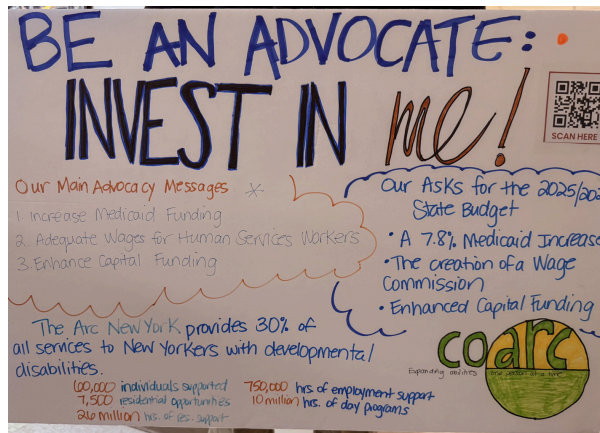 BE AN ADVOCATE:
INVEST IN me!
SCAN HERE
Our Main Advocacy Messages
1. Increase Medicaid Funding
2. Adequate Wages for Human Services Workers
3. Enhance Capital Funding
Our Asks for the 2025/202
State Budget
• A 7.8% Medicaid Increase
• The creation of a Wage
Commission
• Enhanced Capital Funding
The Arc New York provides 30% of
all services to New Yorkers with developmental
disabilities.
60,000 individuals supported
7,500 residential opportunities
26 million hrs. of res. support
750,000 hrs of employment support
10 million hrs. of day programs
coarc
Expanding abilities one person at a time